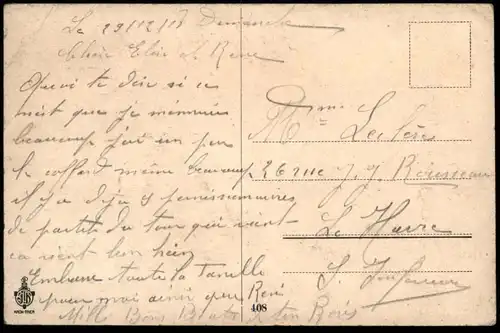 Le 29/12/18 Dimanche
Chère Elise et René
Quoi te dire si ce
n'est que je m'ennuies
beaucoup j'ai un peu
le caffard même beaucoup
il y a déjà 9 permissionnaires
de partit du tour qui vient
ça vient bon hein
Embrasse toute la famille
pour moi ainsi que René
Mille Bons Baisers ton René
Mme Leclère
26 rue J. J. Rousseau
Le Havre
S. Inférieure
408